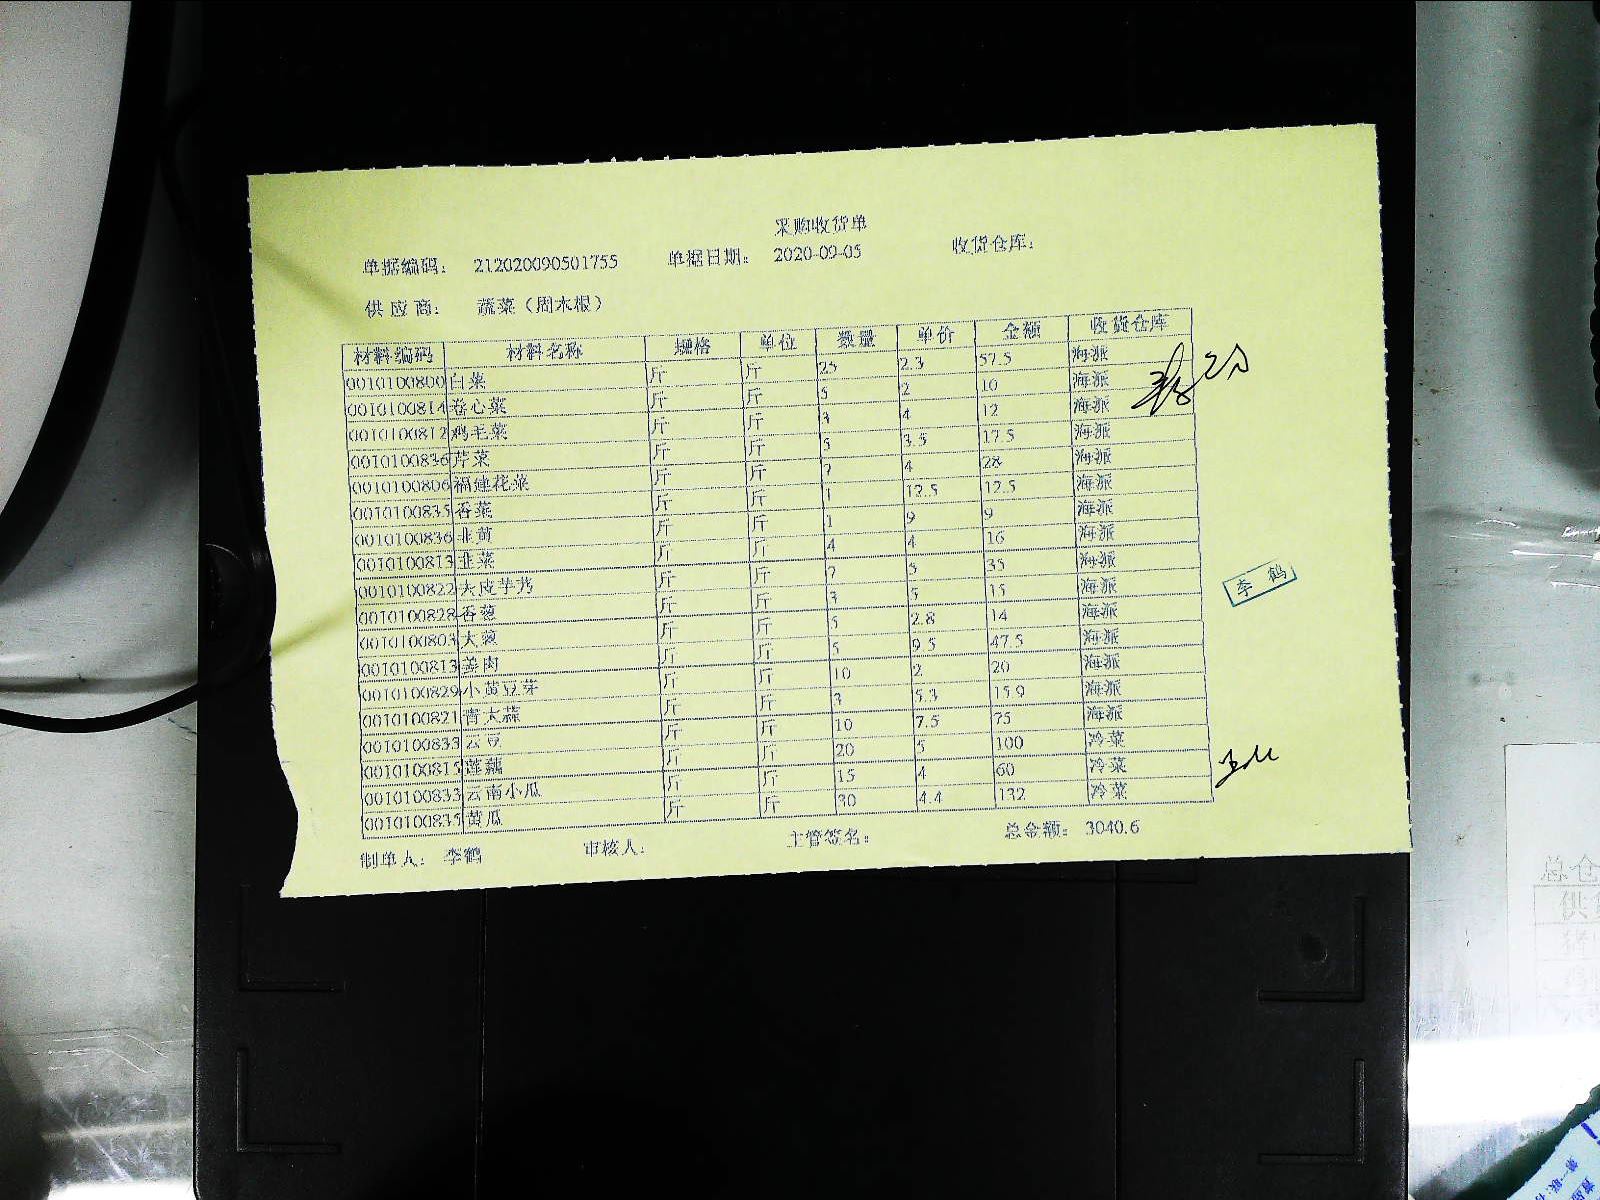 采购收货单
单据编码： 212020090501755 单据日期： 2020-09-05 收货仓库：
供应商： 蔬菜（周木根）
材料编码 材料名称 规格 单位 数量 单价 金额 收货仓库
0010100800 白菜 斤 斤 25 2.3 57.5 海派
0010100814 卷心菜 斤 斤 5 2 10 海派
0010100812 鸡毛菜 斤 斤 3 4 12 海派
0010100836 芹菜 斤 斤 5 3.5 17.5 海派
0010100806 福建花菜 斤 斤 7 4 28 海派
0010100835 香菜 斤 斤 1 12.5 12.5 海派
0010100836 韭黄 斤 斤 1 9 9 海派
0010100813 韭菜 斤 斤 4 4 16 海派
0010100822 大皮芋艿 斤 斤 7 5 35 海派
0010100828 香葱 斤 斤 3 5 15 海派
0010100803 大葱 斤 斤 5 2.8 14 海派
0010100813 姜肉 斤 斤 5 9.5 47.5 海派
0010100829 小黄豆芽 斤 斤 10 2 20 海派
0010100821 青大蒜 斤 斤 3 5.3 15.9 海派
0010100833 云豆 斤 斤 10 7.5 75 海派
0010100815 莲藕 斤 斤 20 5 100 冷菜
0010100833 云南小瓜 斤 斤 15 4 60 冷菜
0010100835 黄瓜 斤 斤 30 4.4 132 冷菜
制单人： 李鹤 审核人： 主管签名： 总金额： 3040.6
李鹤
总仓